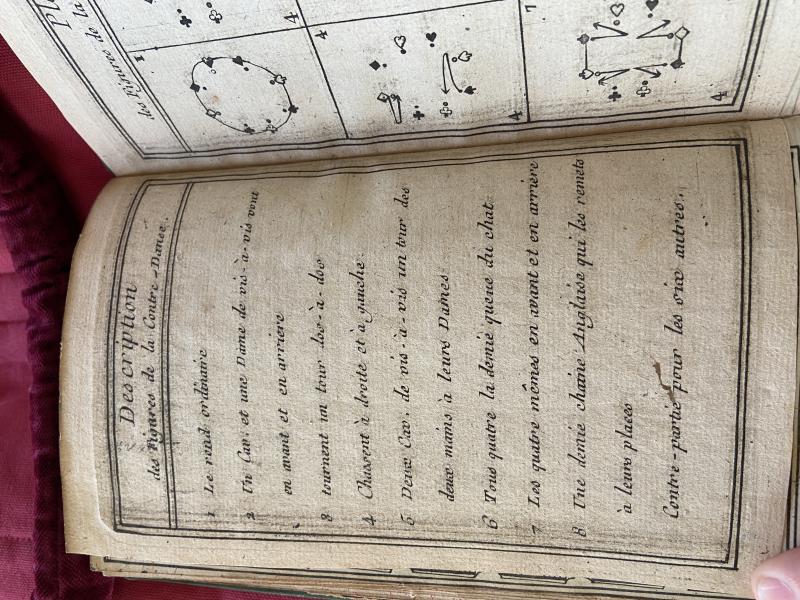 Description
des Figures de la Contre-Danse.
1 Le rond ordinaire
2 Un Cav. et une Dame de vis-à-vis vont
en avant et en arriere
3 tournent un tour dos-à-dos
4 Chassent à droite et à gauche
5 Deux Cav. de vis-à-vis un tour des
deux mains à leurs Dames.
6 Tous quatre la demie queue du chat.
7 Les quatre mêmes en avant et en arriere
8 Une demie chaine Anglaise qui les remets
à leurs places
Contre-partie pour les six autres.
des Figures de la
1
4
4
4
7
4